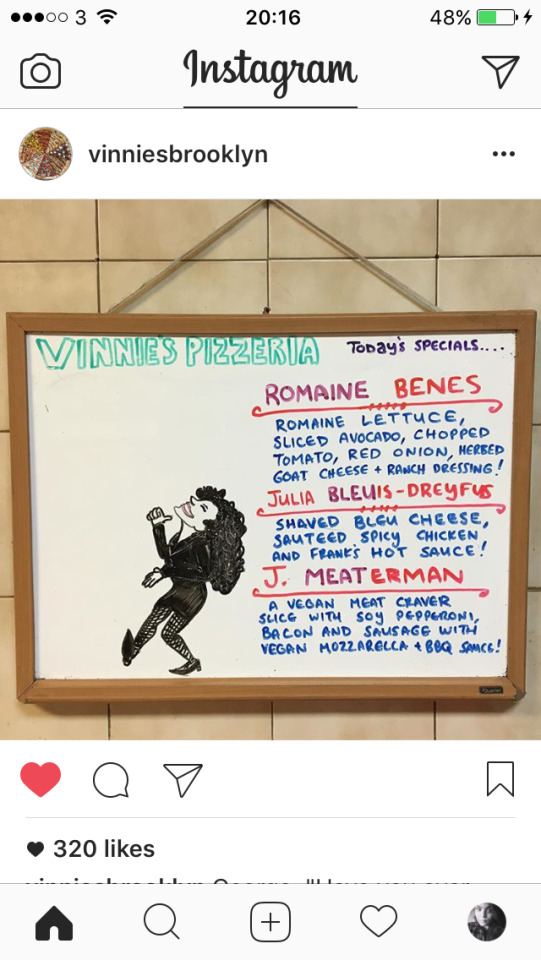 3 20:16 48%
Instagram
vinniesbrooklyn
VINNIE'S PIZZERIA TODAY'S SPECIALS....
ROMAINE BENES
ROMAINE LETTUCE,
SLICED AVOCADO, CHOPPED
TOMATO, RED ONION, HERBED
GOAT CHEESE + RANCH DRESSING!
JULIA BLEUIS-DREYFUS
SHAVED BLEU CHEESE,
SAUTEED SPICY CHICKEN
AND FRANK'S HOT SAUCE!
J. MEATERMAN
A VEGAN MEAT CRAVER
SLICE WITH SOY PEPPERONI,
BACON AND SAUSAGE WITH
VEGAN MOZZARELLA + BBQ SAUCE!
320 likes
vinniesbrooklyn George, "Have you ever